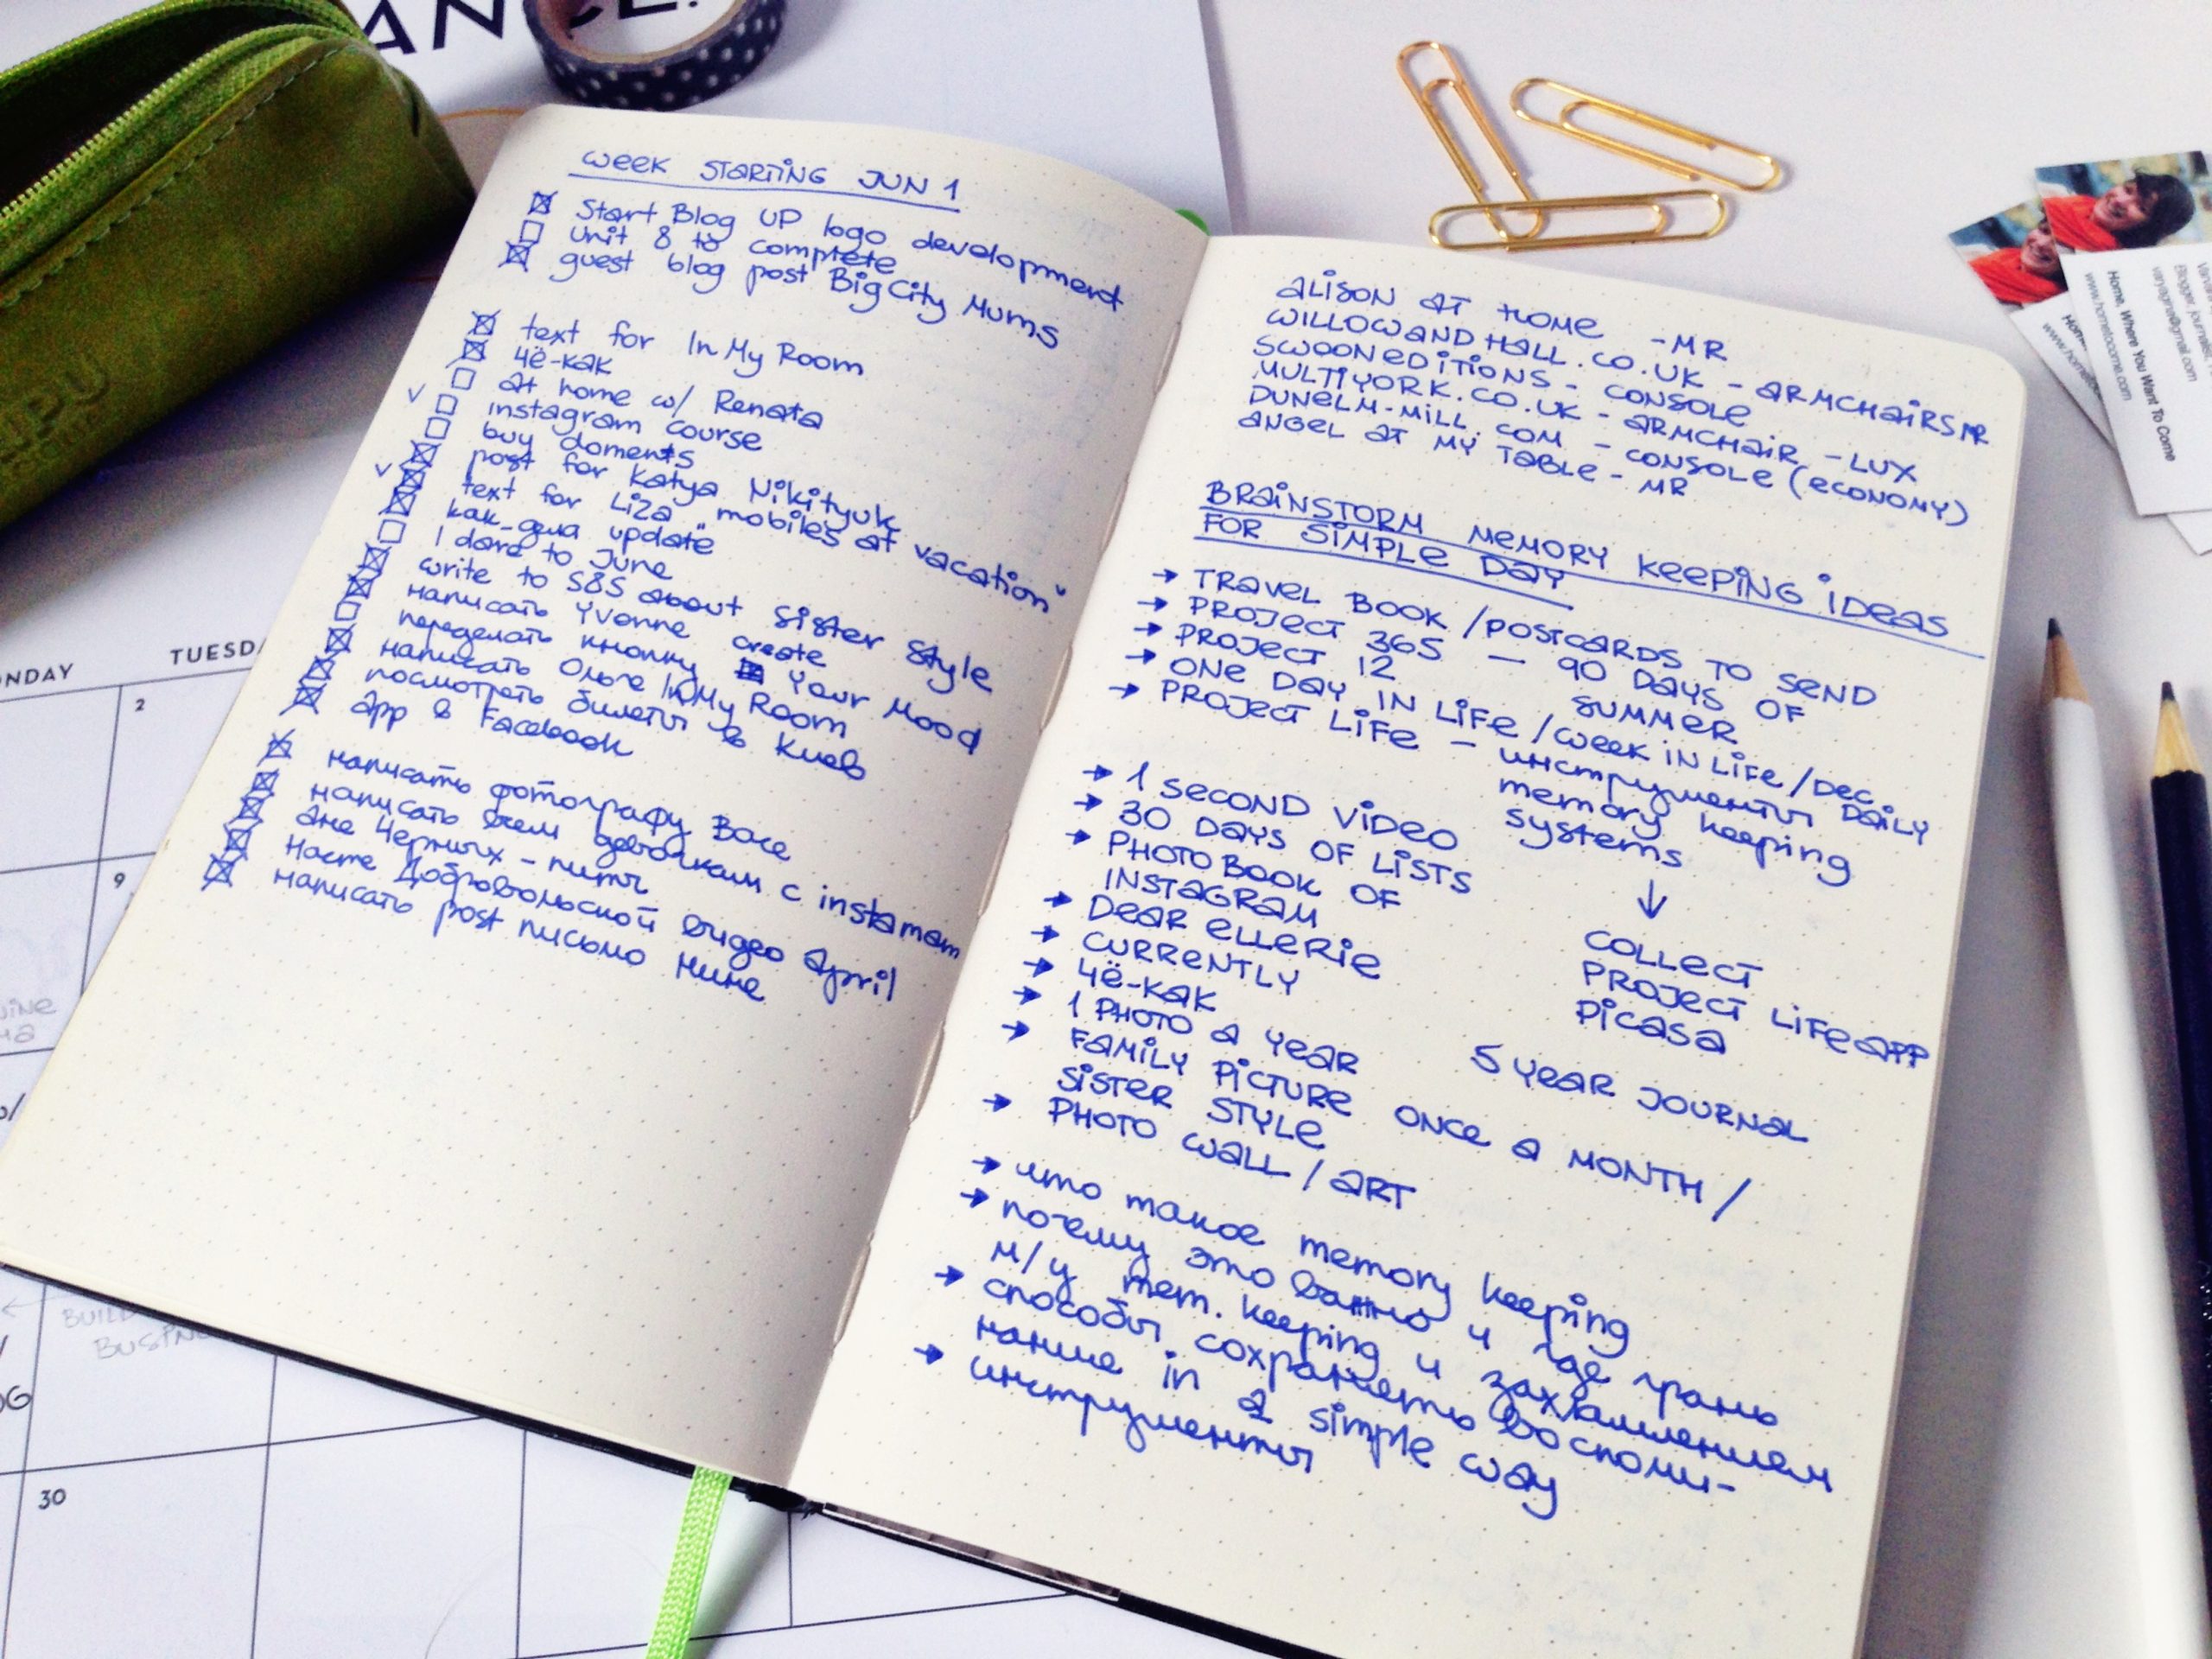 WEEK STARTING JUN 1
Start Blog UP logo development
unit 8 to complete
guest blog post BigCity Mums
text for In My Room
чё-как
at home w/ Renata
instagram course
buy doments
post for Katya Nikityuk
text for Liza "mobiles at vacation"
как_дела update
I dare to June
write to S&S about Sister Style
написать Yvonne create
переделать кнопку Your Mood
написать Ольге In My Room
посмотреть билеты в Киев
App в Facebook
написать фотографу Васе
написать всем девочкам с instamam
Ане Черных - питч
Насте Добровольской видео April
написать post письмо Нине
ALISON AT HOME - MR
WILLOWANDHALL.CO.UK - ARMCHAIRS MR
SWOONEDITIONS - CONSOLE
MULTIYORK.CO.UK - ARMCHAIR - LUX
DUNELM-MILL.COM - CONSOLE (ECONOMY)
ANGEL AT MY TABLE - MR
BRAINSTORM MEMORY KEEPING IDEAS
FOR SIMPLE DAY
→ TRAVEL BOOK / POSTCARDS TO SEND
→ PROJECT 365 — 90 DAYS OF
SUMMER
→ PROJECT 12
→ ONE DAY IN LIFE / WEEK IN LIFE / DEC. DAILY
→ PROJECT LIFE - инструменты
memory keeping
systems
↓
COLLECT
PROJECT LIFE APP
PICASA
→ 1 SECOND VIDEO
→ 30 DAYS OF LISTS
→ PHOTOBOOK OF
INSTAGRAM
→ DEAR ELLERIE
→ CURRENTLY
→ ЧЁ-КАК
→ 1 PHOTO A YEAR
5 YEAR JOURNAL
→ FAMILY PICTURE ONCE A MONTH /
SISTER STYLE
→ PHOTO WALL / ART
→ что такое memory keeping
→ почему это важно и где грань
м/у mem. keeping и захламлением
→ способы сохранять воспоми-
нание in a simple way
→ инструменты
MONDAY
TUESDAY
2
9
30
BUILD
Home. Where You Want To Come
www.hometocome.com